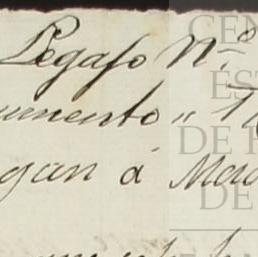 Legajo Nº
umento „ T
gan á Mad
CEN
EST
DE P
DE